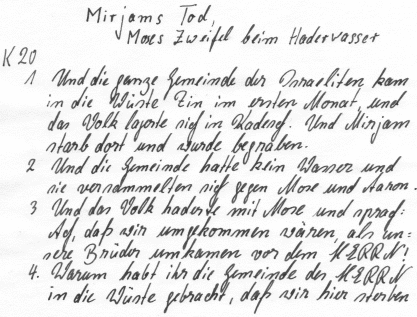 Mirjams Tod,
Moses Zweifel beim Haderwasser
K 20
1 Und die ganze Gemeinde der Israeliten kam
in die Wüste Zin im ersten Monat, und
das Volk lagerte sich in Kadesch. Und Mirjam
starb dort und wurde begraben.
2 Und die Gemeinde hatte kein Wasser und
sie versammelten sich gegen Mose und Aaron.
3 Und das Volk haderte mit Mose und sprach:
Ach, daß wir umgekommen wären, als un-
sere Brüder umkamen vor dem HERRN!
4. Warum habt ihr die Gemeinde des HERRN
in die Wüste gebracht, daß wir hier sterben